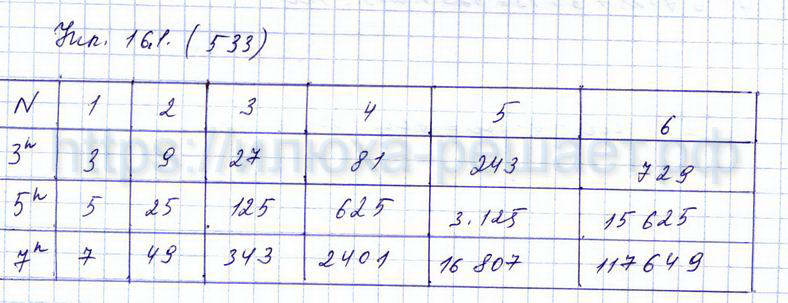 Упр. 161. (533)
N 1 2 3 4 5 6
3ⁿ 3 9 27 81 243 729
5ⁿ 5 25 125 625 3.125 15 625
7ⁿ 7 49 343 2401 16 807 117649